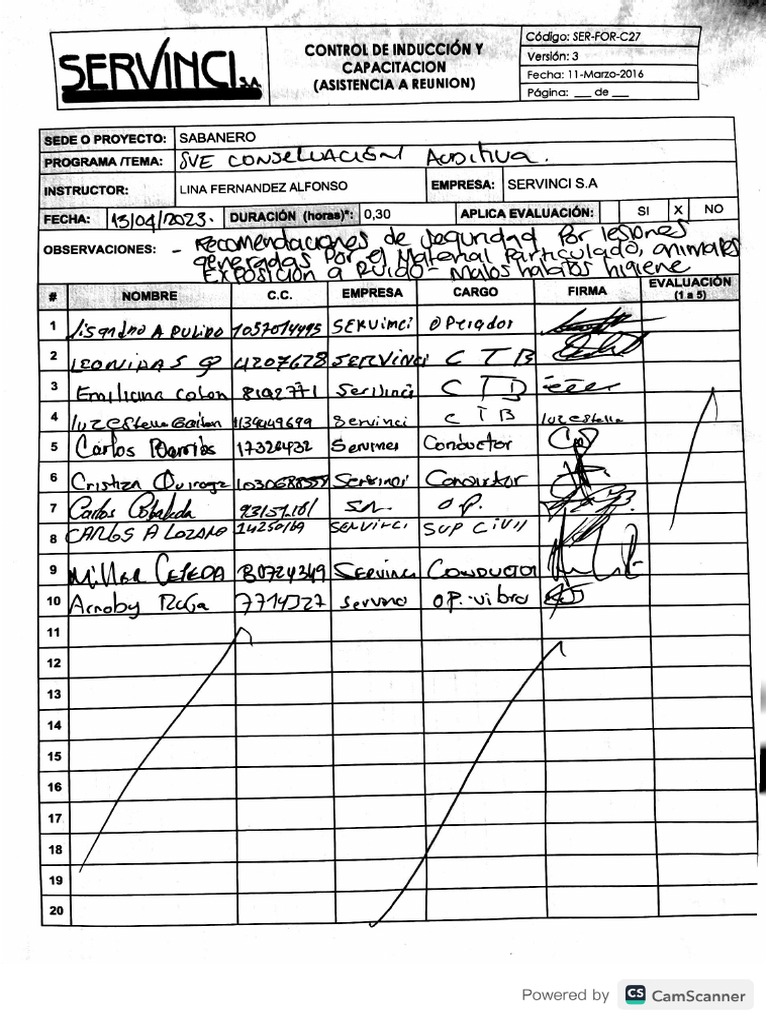 SERVINCI S.A
CONTROL DE INDUCCIÓN Y
CAPACITACION
(ASISTENCIA A REUNION)
Código: SER-FOR-C27
Versión: 3
Fecha: 11-Marzo-2016
Página: ___ de ___
SEDE O PROYECTO: SABANERO
PROGRAMA /TEMA: SVE CONSERVACIÓN Auditiva.
INSTRUCTOR: LINA FERNANDEZ ALFONSO EMPRESA: SERVINCI S.A
FECHA: 13/04/2023. DURACIÓN (horas)*: 0,30 APLICA EVALUACIÓN: SI X NO
OBSERVACIONES: - Recomendaciones de seguridad por lesiones
generadas por el Material Particulado, animales
EXPOSICIÓN a Ruido - Malos habitos higiene
# NOMBRE C.C. EMPRESA CARGO FIRMA EVALUACIÓN (1 a 5)
1 Lisandro A PULIDO 1057014495 SERVINCI Operador
2 LEONIDAS GP 4207628 SERVINCI CTB
3 Emiliana Colon 8192771 Servinci CTB
4 luz Estella Gaitan 1134449699 Servinci CTB luz Estella
5 Carlos Barrios 17326432 Conductor
6 Cristian Quiroga Servinci Conductor
7 Carlos OP.
8 CARLOS A LOZANO 14250169 SERVINCI SUP CIVIL
9 Miller CEPEDA 80724349 SERVINCI CONDUCTOR
10 Arnoby 7714327 OP. vibro
11
12
13
14
15
16
17
18
19
20
Powered by CS CamScanner